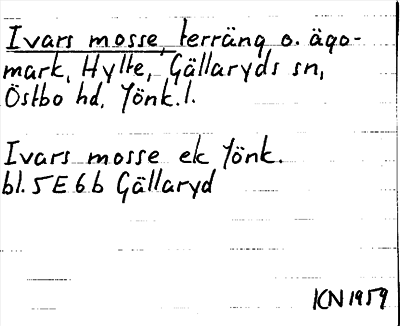 Ivars mosse, terräng o. ägo-
mark, Hylte, Gällaryds sn,
Östbo hd, Jönk.l.
Ivars mosse ek Jönk.
bl. 5E6b Gällaryd
KN1959